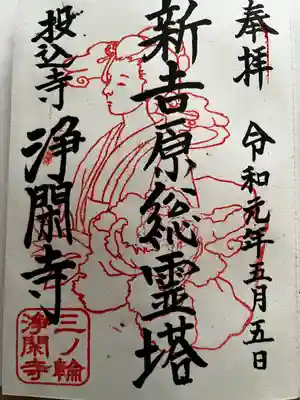 奉拝
令和元年五月五日
新吉原総霊塔
投込寺
浄閑寺
三ノ輪
浄閑寺